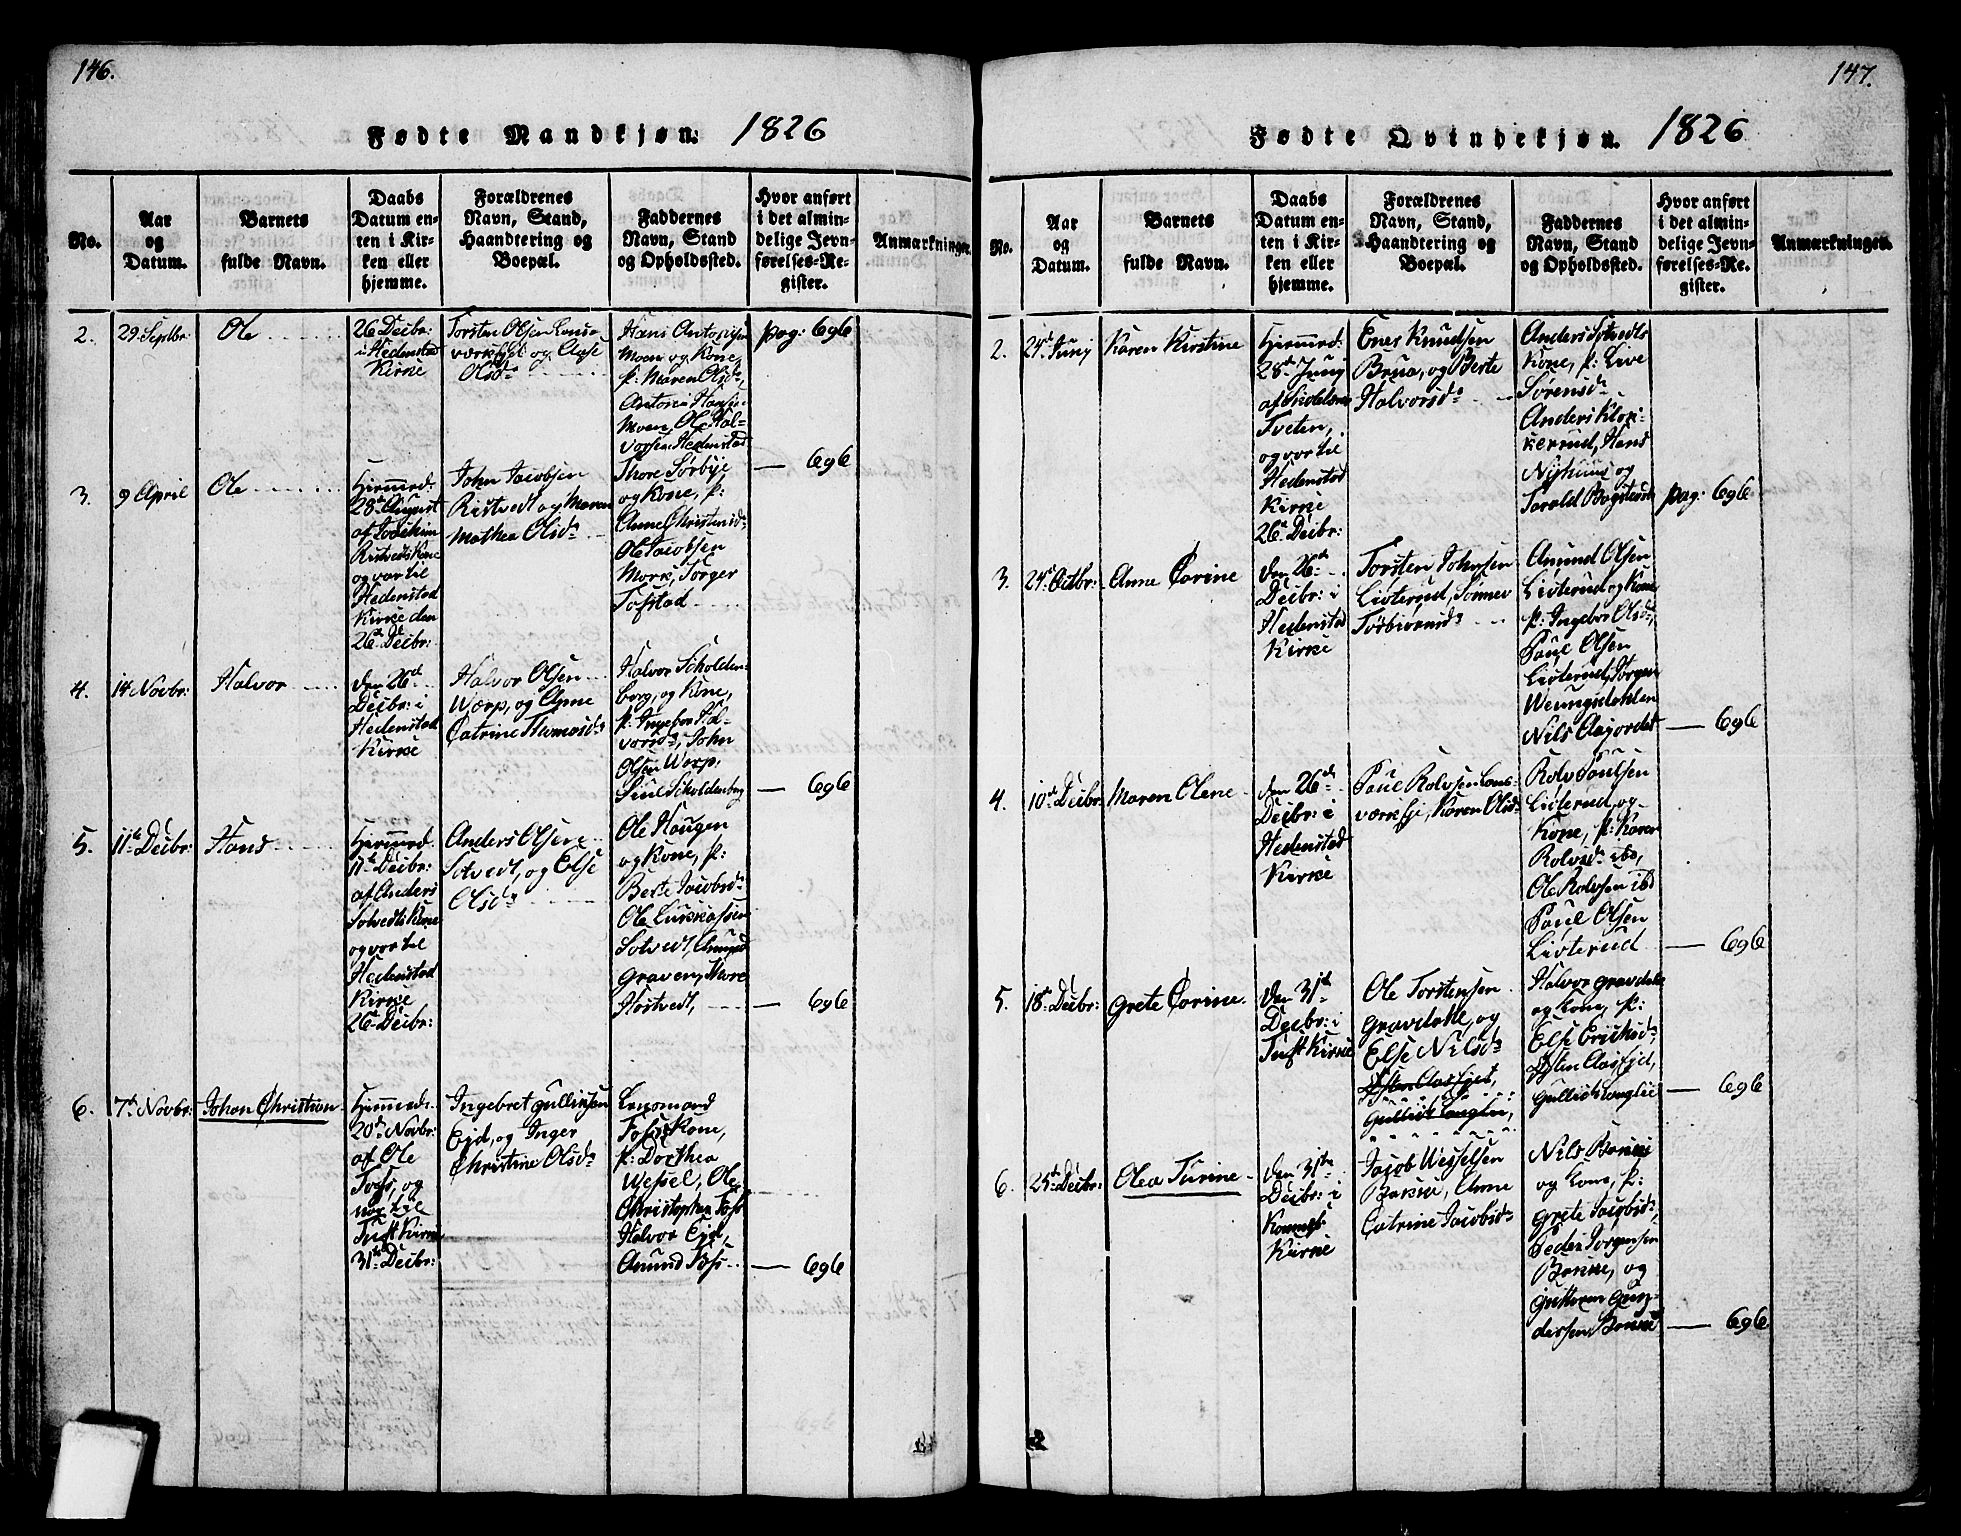 146.
Fødte Mandkjøn: 1826
No.
Aar
og
Datum.
Barnets
fulde Navn.
Daabs
Datum en-
ten i Kir-
ken eller
hjemme.
Forældrenes
Navn, Stand,
Haandtering og
Boepæl.
Faddernes
Navn, Stand
og Opholdssted.
Hvor anført
i det almin-
delige Jevn-
førelses-Re-
gister.
Anmærkninger.
2.
29 Septbr
Ole
26 Decbr:
i Hedenstad
Kirke
Torsten Olsen
og
Olsdr
Hans Antonisen
Moen og Kone,
p: Maren Olsdr,
Antoni Hansen
Moen, Ole Hal-
vorsen Hedenstad
pag: 696
3.
9 April
Ole
Hiemmed:
28de August
af Jochim
Ristvedts Kone
og var til
Hedenstad
Kirke den
26de Decbr:
John Jacobsen
Ristvedt og Maren
Mathea Olsdr
Thore Sørbye
og Kone, p:
Anne Christensdr
Ole Jacobsen
Mork, Torger
Tofstad
696
4.
14 Novbr:
Halvor
den 26de
Decbr: i
Hedenstad
Kirke
Halvor Olsen
Worp, og Anne
Catrine Thomasdr
Halvor Scholden-
borg, og Kone,
p: Ingebor Hal-
vorsdr, John
Olsen Worp,
Scholdenborg
696
5.
11te Decbr:
Hans
Hiemmed:
11te Decbr:
af Anders
Sotvedts Kone
og var til
Hedenstad
Kirke
26de Decbr:
Anders Olsen
Sotvedt, og Else
Olsdr
Ole Haugen
og Kone, p:
Berte Jacobsdr
Ole Lukkassen
Sotvedt, Amund
Graven,
Hostvedt,
696
6.
7de Novbr:
Johan Christian
Hiemmede
20de Novbr:
af Ole
Foss, og
var til
Tuft Kirke
31te Decbr:
Ingebret Gulliksen
Ejd, og Inger
Christine Olsdr
Lensmand
Foss Kone,
p: Dorthea
Wessel, Ole
Christophen Foss
Halvor Ejd,
Amund Foss
696
147.
Fødte Qvindekjøn. 1826
No.
Aar
og
Datum.
Barnets
fulde Navn.
Daabs
Datum en-
ten i Kir-
ken eller
hjemme.
Forældrenes
Navn, Stand,
Haandtering og
Boepæl.
Faddernes
Navn, Stand
og Opholdssted.
Hvor anført
i det almin-
delige Jevn-
førelses-Re-
gister.
Anmærkninger.
2.
24de Junj
Karen Kirstine
Hiemmed:
28de Junj
af
Tveten,
og var til
Hedenstad
Kirke
26de Decbr:
Knudsen
Brua, og Berte
Halvorsdr
Anders Sotvedts
Kone, p: Live
Sørensdr
Anders Klok-
kerrud, Hans
Nyhuus og
Tarald
pag: 696
3.
24de Octbr:
Anne Corine
den 26de
Decbr: i
Hedenstad
Kirke
Torsten Johnsen
Livterud, Sønnev
Torbiørnsdr
Amund Olsen
Livterud og Kone
p: Ingebor Olsdr,
Poul Olsen
Livterud, Jørgen
Weungsdahlen
Nils Aagordet
696
4.
10de Decbr:
Maren Olene
den 26de
Decbr: i
Hedenstad
Kirke
Poul Rolvsen
Karen Olsdr
Rolv Poulsen
Livterud, og
Kone, p: Karen
Rolvsdr ibd,
Ole Rolvsen ibd
Poul Olsen
Livterud
696
5.
18de Decbr:
Grete Corine
den 31te
Decbr: i
Tuft Kirke
Ole Torstensen
Gravdahl, og
Else Nilsdr
Østen Aasejet,
Gullick Langlie,
Halvor Gravdahl
og Kone, p:
Else Ericksdr,
Østen Aasejd,
Gullick Langlie
696
6.
25de Decbr:
Olea Turine
den 31te
Decbr: i
Komnes
Kirke
Jacob Wesselsen
Bakke, Anne
Catrine Jacobsdr
Nils Bakke
og Kone, p:
Grete Jacobsdr,
Peder Jørgensen
Bakke, og
Guttorm Gun-
dersen Bakke
696